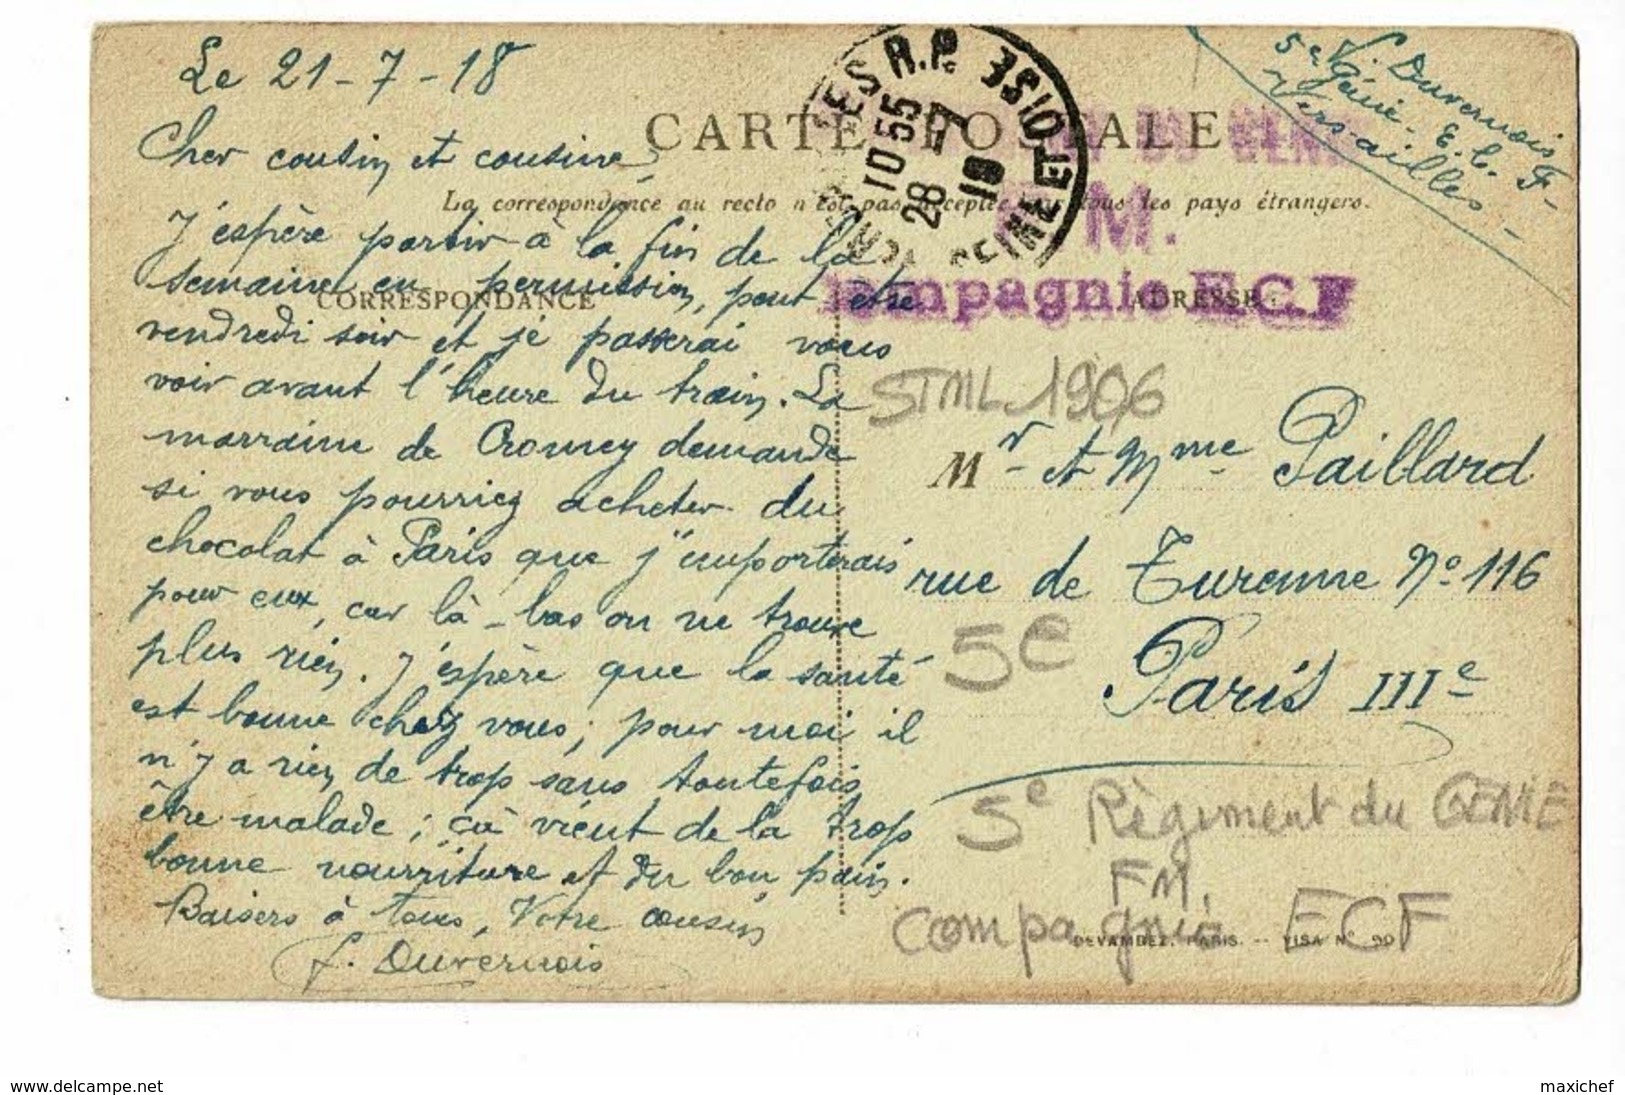 Le 21-7-18
Cher cousin et cousine,
J'éspère partir à la fin de la
semaine en permission, peut être
vendredi soir et je passerai vous
voir avant l'heure du train. La
marraine de demande
si vous pourriez acheter du
chocolat à Paris que j'emporterais
pour eux, car là-bas on ne trouve
plus rien. J'éspère que la santé
est bonne chez vous; pour moi il
n'y a rien de trop sans toutefois
être malade; çà vient de la trop
bonne nourriture et du bon pain.
Baisers à tous, Votre cousin
f. Duvernois
CARTE POSTALE
La correspondance au recto n'est pas acceptée par tous les pays étrangers.
CORRESPONDANCE
ADRESSE
R.P.
SEINE ET OISE
10 55
28 -7
18
M.
Compagnie E.C.F
f. Duvernois
5e génie - E.C.F-
Versailles -
STML 1906
Mr et Mme Paillard
rue de Turenne No 116
5e
Paris IIIe
5e Règiment du GENIE
FM.
Compagnie ECF
DEVAMBEZ, PARIS. -- VISA No 90
www.delcampe.net
maxichef